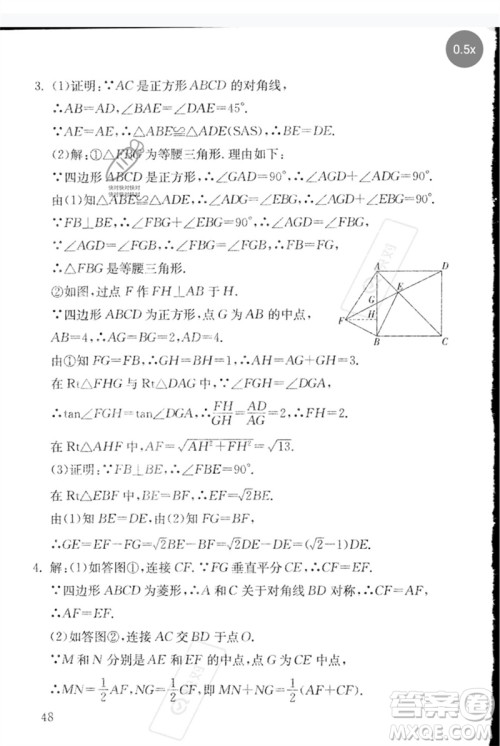 0.5x
3. (1)证明:∵AC是正方形ABCD的对角线,
∴AB=AD,∠BAE=∠DAE=45°.
∵AE=AE,∴△ABE≌△ADE(SAS),∴BE=DE.
(2)解:①△FBG为等腰三角形.理由如下:
∵四边形ABCD是正方形,∴∠GAD=90°,∴∠AGD+∠ADG=90°.
由(1)知△ABE≌△ADE,∴∠ADG=∠EBG,∴∠AGD+∠EBG=90°.
∵FB⊥BE,∴∠FBG+∠EBG=90°,∴∠AGD=∠FBG.
∵∠AGD=∠FGB,∴∠FBG=∠FGB,∴FG=FB,
∴△FBG是等腰三角形.
②如图,过点F作FH⊥AB于H.
∵四边形ABCD为正方形,点G为AB的中点,
AB=4,∴AG=BG=2,AD=4.
由①知FG=FB,∴GH=BH=1,∴AH=AG+GH=3.
在Rt△FHG与Rt△DAG中,∵∠FGH=∠DGA,
∴tan∠FGH=tan∠DGA,∴FH/GH=AD/AG=2,∴FH=2.
在Rt△AHF中,AF=√(AH²+FH²)=√13.
(3)证明:∵FB⊥BE,∴∠FBE=90°.
在Rt△EBF中,BE=BF,∴EF=√2BE.
由(1)知BE=DE,由(2)知FG=BF,
∴GE=EF−FG=√2BE−BF=√2DE−DE=(√2−1)DE.
A
D
G
E
F
H
B
C
4. 解:(1)如答图①,连接CF.∵FG垂直平分CE,∴CF=EF.
∵四边形ABCD为菱形,∴点A和点C关于对角线BD对称,∴CF=AF,
∴AF=EF.
(2)如答图②,连接AC交BD于点O.
∵M和N分别是AE和EF的中点,点G为CE的中点,
∴MN=1/2AF,NG=1/2CF,即MN+NG=1/2(AF+CF).
48